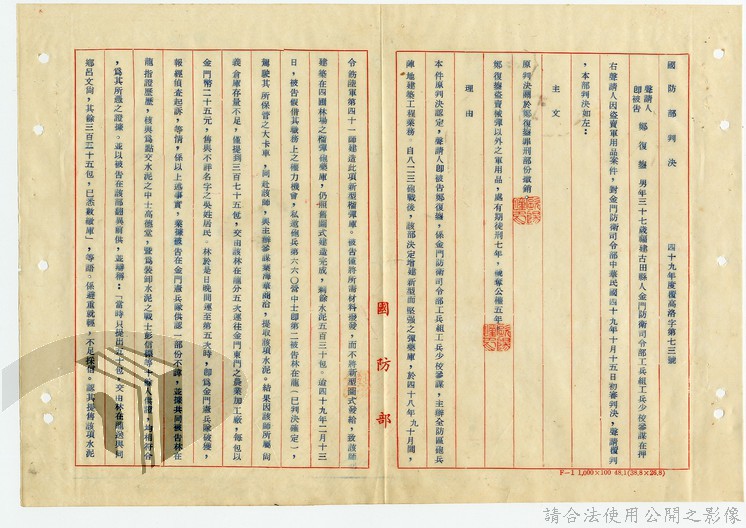 國防部判決　四十九年度覆高洛字第七三號
聲請人
即被告　鄭復掀　男年三十七歲福建古田縣人金門防衛司令部工兵組工兵少校參謀在押
右聲請人因盜賣軍用品案件，對金門防衛司令部中華民國四十九年十月十五日初審判決，聲請覆判
，本部判決如左：
主文
原判決關於鄭復掀罪刑部份撤銷
鄭復掀盜賣械彈以外之軍用品，處有期徒刑七年，褫奪公權五年
理由
本件原判決認定，聲請人即被告鄭復掀，係金門防衛司令部工兵組工兵少校參謀，主辦全防區砲兵
陣地建築工程業務。自八二三砲戰後，該部決定增建新型而堅强之彈藥庫，於四十八年九十月間，
令飭陸軍第四十一師建造此項新型榴彈庫。被告僅將所需材料發給，而不將新型圖式發給，致該師
建築在四國林場之榴彈砲藥庫，仍照舊圖式建造完成，剩餘水泥五百三十包。迨四十九年二月十三
日，被告假借其職務上之權力機會，私邀砲兵第六六〇營中士即第二被告林在龍（已判決確定），
駕駛其所保管之大卡車，同赴該師，與主辦參謀葉海華商洽，提取該項水泥。結果因該師所屬尚
義倉庫存量不足，僅提到三百七十五包，交由該林在龍分五次運往金門東門之農業加工廠，每包以
金門幣二十五元，售與不詳名字之吳姓居民。林於是日晚間運至第五次時，即為金門憲兵隊破獲，
報經偵查起訴，等情，係以上述事實，業據被告在金門憲兵隊供認一部份不諱，並據共同被告林在
龍指證歷歷，核與為點交水泥之中士高德堂，暨為裝卸水泥之戰士彭信禄等十餘人供證，均相符合
，為其所憑之證據。並以被告在該部翻異前供，並辯稱：「當時只提出五十包，交由林在龍送與同
鄉呂文尚，其餘三百二十五包，已悉數繳庫」，等語。係避重就輕，不足採信。謂其提售該項水泥
國防部
F-1 1,000×100 48.1(38.8×26.8)
請合法使用公開之影像